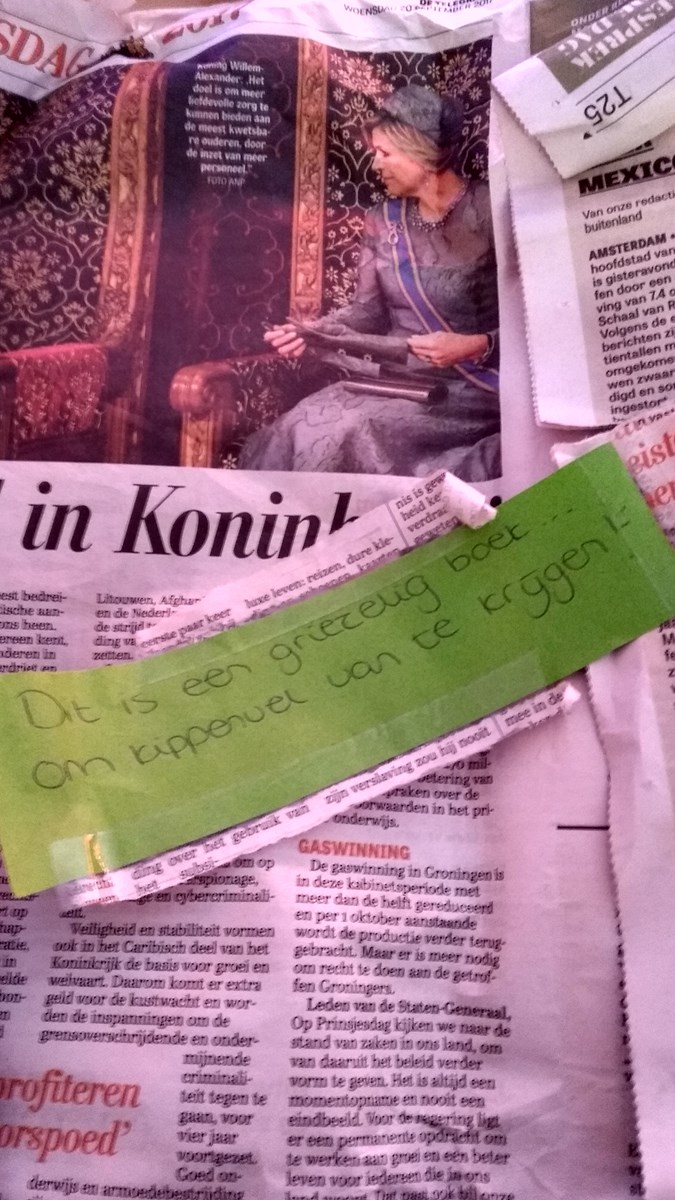 SDAG
WOENSDAG 20 SEPTEMBER 2017
Koning Willem-
Alexander: „Het
doel is om meer
liefdevolle zorg te
kunnen bieden aan
de meest kwetsba-
re ouderen, door
de inzet van meer
personeel.”
FOTO ANP
ESPREK
DAG
T25
MEXICO
Van onze redacti
buitenland
AMSTERDAM •
hoofdstad van
is gisteravond
fen door een
ving van 7.4 o
Schaal van R
Volgens de e
berichten zi
tientallen m
omgekome
wen zwaar
digd en so
ingestort
in Konink
nis is gew
heid ke
verdra
geweten
luxe leven: reizen, dure kle-
eerste paar keer
est bedrei-
ische aan-
ons heen.
ereen kent,
nderen in
erdriet en
Litouwen, Afghan
en de Nederl
de strijd t
ding va
zetten.
Dit is een griezelig boek...
om kippenvel van te krijgen!
mee in de
zijn verslaving zou hij nooit
ding over het gebruik van
het
om op
spionage,
ge en cybercriminali-
teit.
Veiligheid en stabiliteit vormen
ook in het Caribisch deel van het
Koninkrijk de basis voor groei en
welvaart. Daarom komt er extra
geld voor de kustwacht en wor-
den de inspanningen om de
grensoverschrijdende en onder-
mijnende
criminali-
teit tegen te
gaan, voor
vier jaar
voortgezet.
Goed on-
derwijs en armoedebestrijding
profiteren
orspoed’
mil-
betering van
praken over de
oorwaarden in het pri-
onderwijs.
GASWINNING
De gaswinning in Groningen is
in deze kabinetsperiode met
meer dan de helft gereduceerd
en per 1 oktober aanstaande
wordt de productie verder terug-
gebracht. Maar er is meer nodig
om recht te doen aan de getrof-
fen Groningers.
Leden van de Staten-Generaal,
Op Prinsjesdag kijken we naar de
stand van zaken in ons land, om
van daaruit het beleid verder
vorm te geven. Het is altijd een
momentopname en nooit een
eindbeeld. Voor de regering ligt
er een permanente opdracht om
te werken aan groei en een beter
leven voor iedereen die in ons
land woont. Dat past ook bij onze